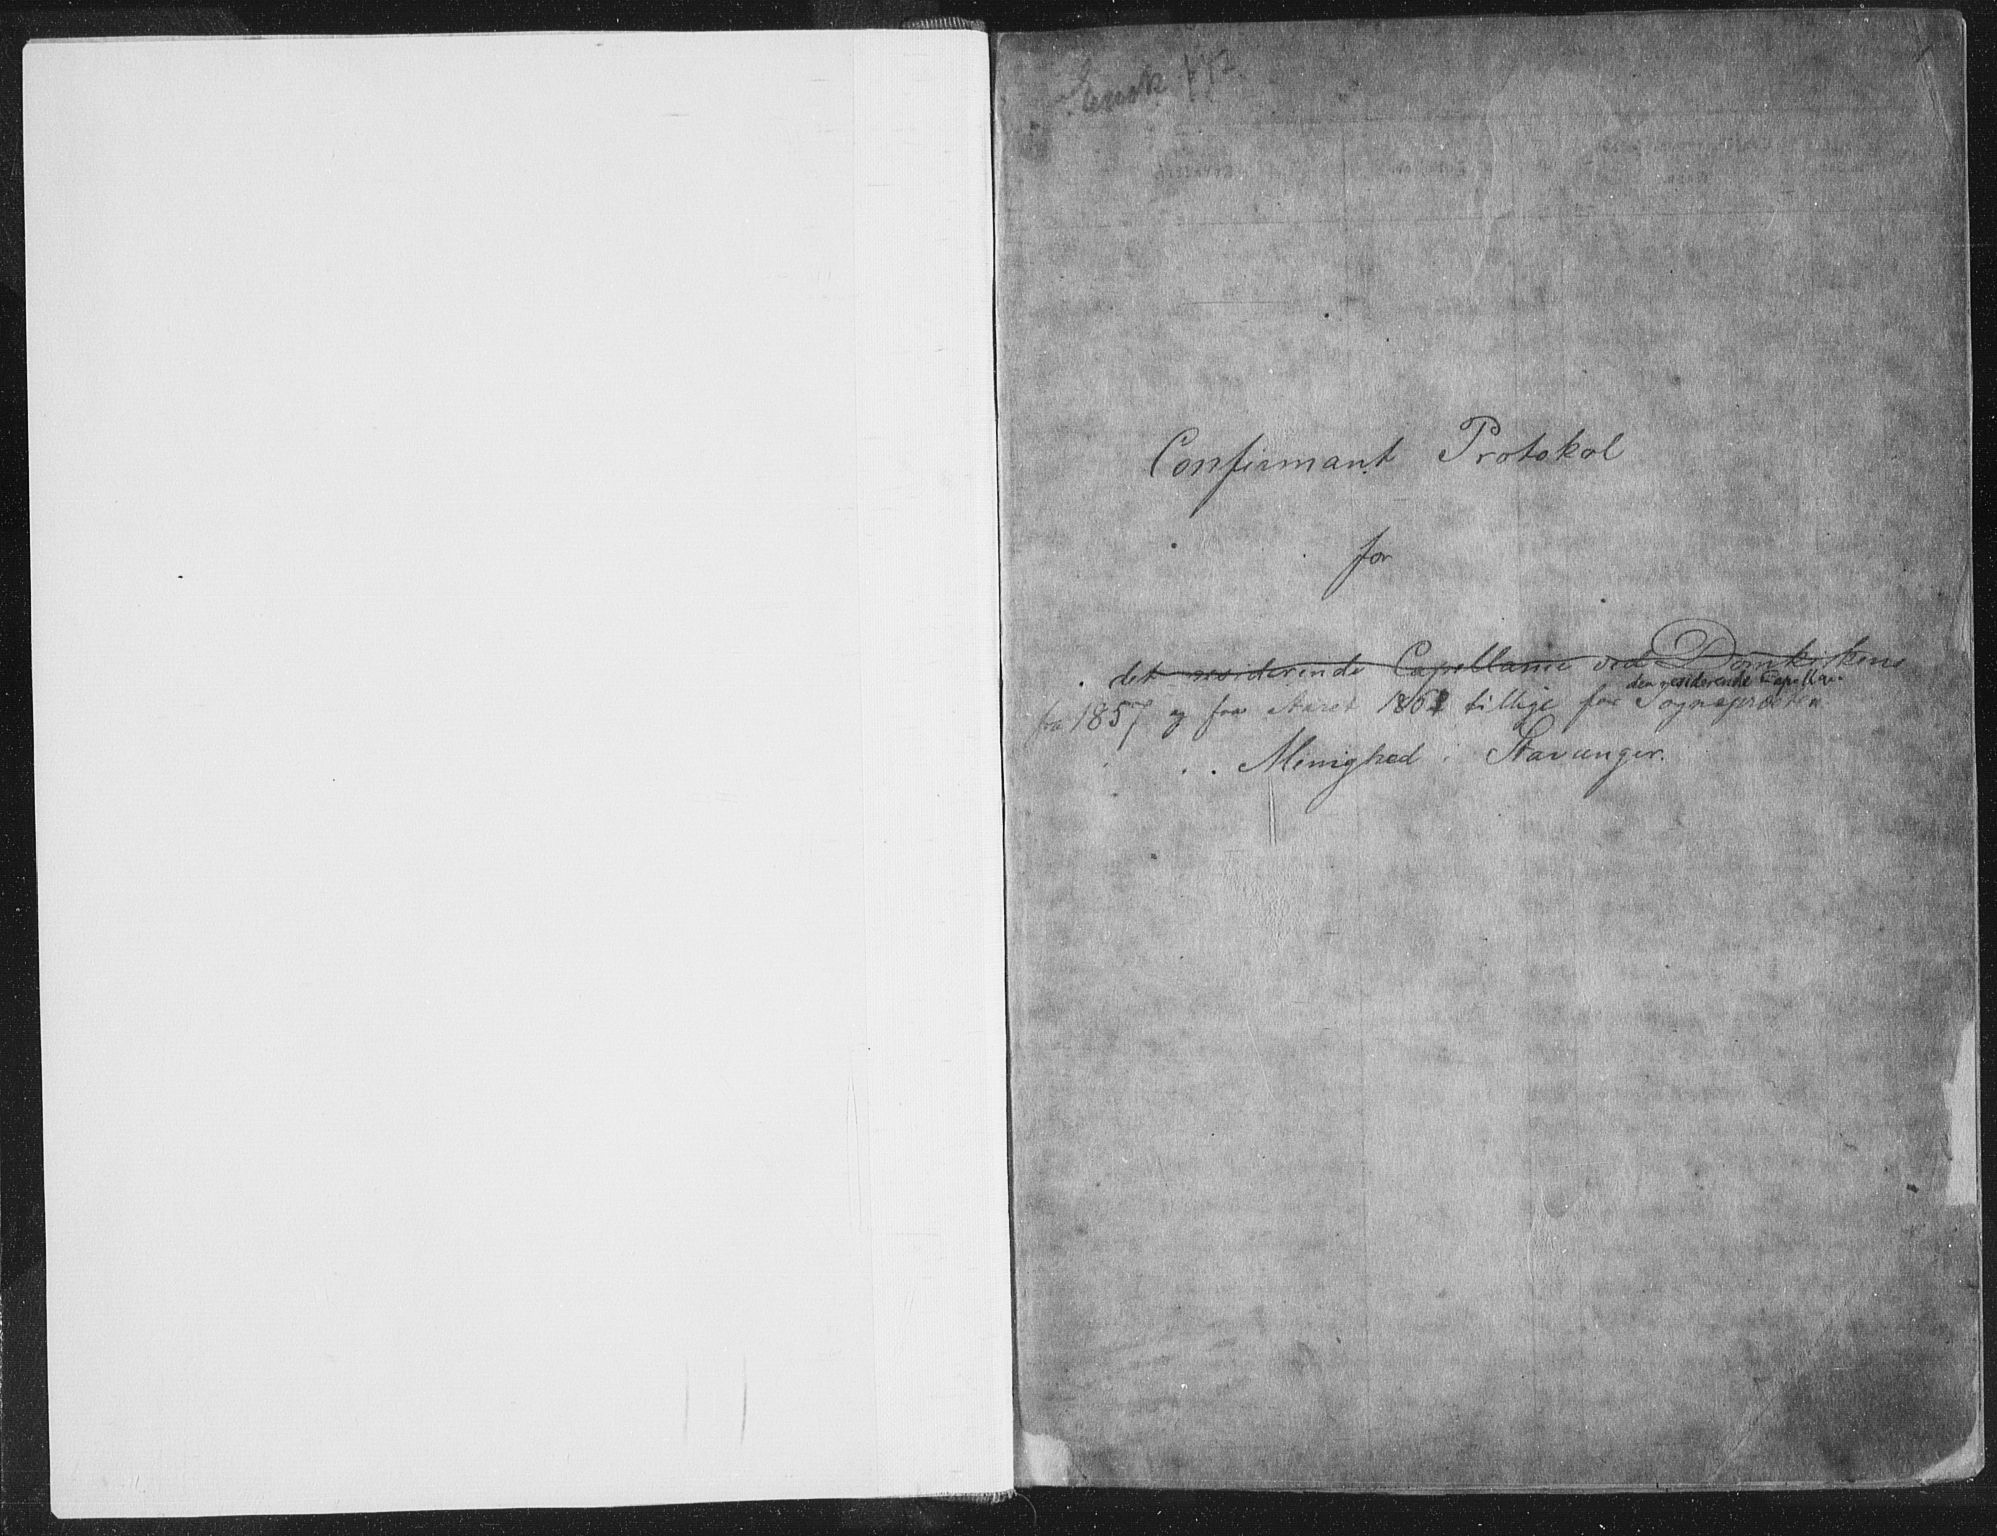 Confirmant Protokol
for
det residerende Capellanie ved Domkirkens
den residerende Capellan
fra 1857 og fra Aaret 1862 tillige for Sognepræsten
Menighed i Stavanger.